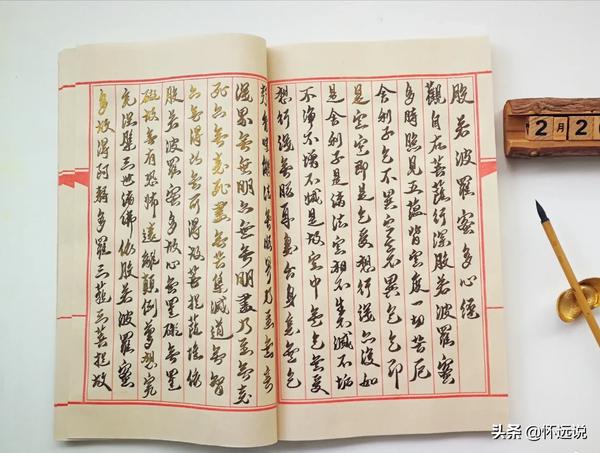 般若波羅蜜多心經
觀自在菩薩行深般若波羅蜜
多時照見五蘊皆空度一切苦厄
舍利子色不異空空不異色色即
是空空即是色受想行識亦復如
是舍利子是諸法空相不生不滅不垢
不淨不增不減是故空中無色無受
想行識無眼耳鼻舌身意無色
聲香味觸法無眼界乃至無意
識界無無明亦無無明盡乃至無老
死亦無老死盡無苦集滅道無智
亦無得以無所得故菩提薩埵依
般若波羅蜜多故心無罣礙無罣
礙故無有恐怖遠離顛倒夢想究
竟涅槃三世諸佛依般若波羅蜜
多故得阿耨多羅三藐三菩提故
2月2
头条 @怀远说